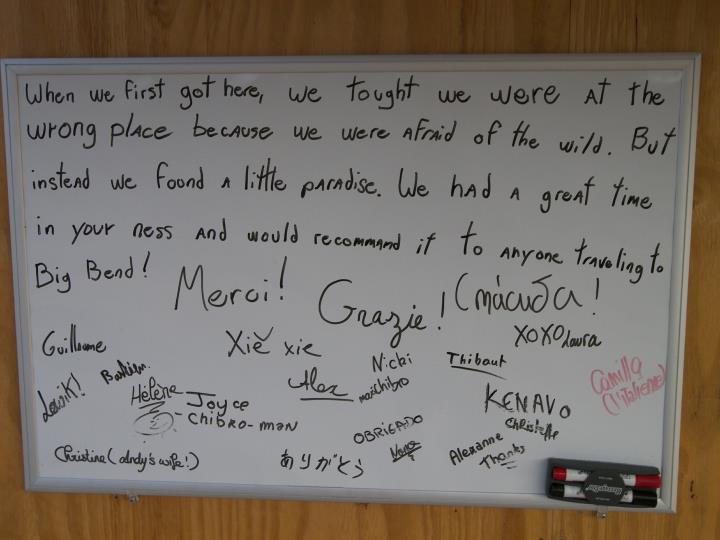 When we first got here, we tought we were at the
wrong place because we were afraid of the wild. But
instead we found a little paradise. We had a great time
in your ness and would recommand it to anyone traveling to
Big Bend!
Merci! Grazie! Спасиба!
Guillaume
Xiě xie
XOXO Laura
Loïk!
Bastien
Hélène
Joyce
Chibro-man
Alex
Nicki
Thibaut
KENAVO
Christelle
Camilla
OBRIGADO
Alexanne
Thanks
Christine (andy's wife!)
ありがとう